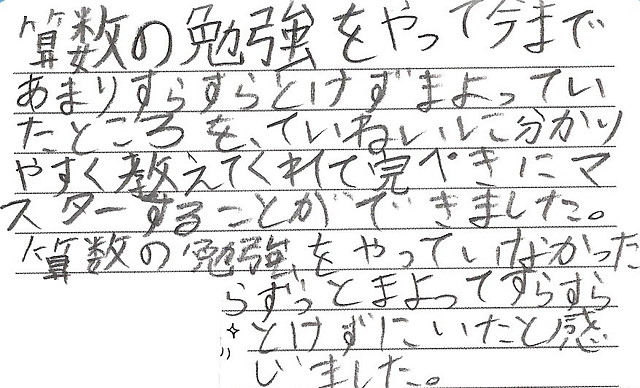 算数の勉強をやって今まで
あまりすらすらとけずまよってい
たところを、ていねいに分かり
やすく教えてくれて完ぺきにマ
スターすることができました。
算数の勉強をやっていなかった
らずっとまよってすらすら
とけずにいたと感
じました。